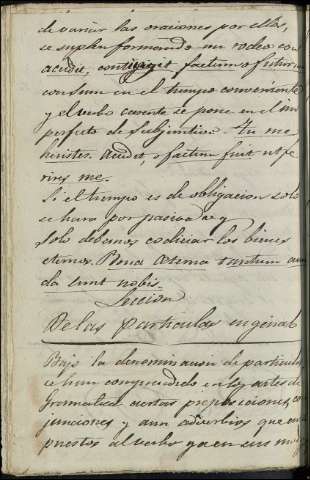 de variar las oraciones por ellos,
se suplen formando un rodeo con
accidit, contigit factum o futurum
con sum en el tiempo conveniente
y el verbo carente se pone en el im
perfecto de subjuntivo. Tu me
heristes. Accidit, o factum fuit ut fe
rires me.
Si el tiempo es de obligacion solo
se hara por pasiva
solo debamos codiciar los bienes
eternos. Bona æterna tantum
da sunt nobis.
Leccion
De las Particulas en general
Bajo la denominacion de particulas
se han comprendido en las artes de
Gramatica ciertas preposiciones, co
junciones y aun adverbios que
puestos al verbo ya en sus